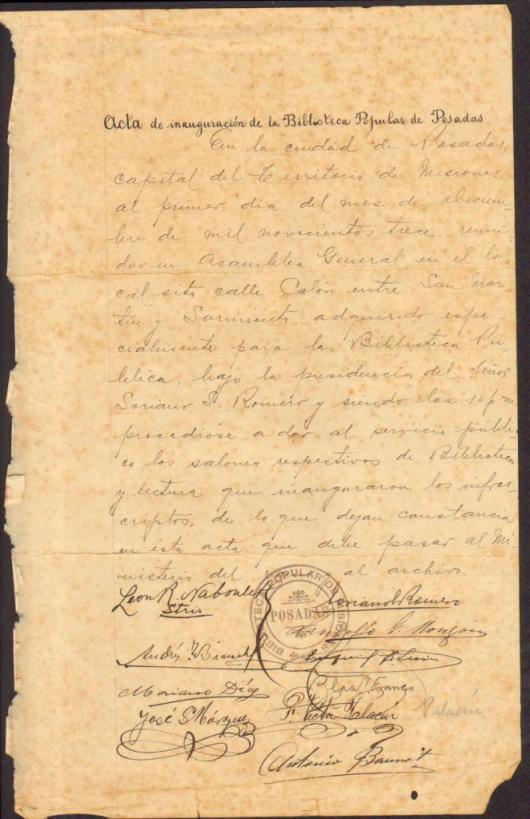 Acta de inauguración de la Biblioteca Popular de Posadas
En la ciudad de Posadas,
capital del Territorio de Misiones
al primer dia del mes de diciem-
bre de mil novecientos trece, reuni-
dos en Asamblea General en el lo-
cal sito calle Colón entre San Mar-
tín y Sarmiento adquirido espe-
cialmente para la Biblioteca Pú-
blica, bajo la presidencia del Señor
Soriano S. Romero y siendo las 10 p m
procedióse a dar al servicio públi-
co los salones respectivos de Biblioteca
y lectura que inauguraron los infras-
criptos, de lo que dejan constancia
en esta acta que debe pasar al Mi-
nisterio del
al archivo.
BIBLIOTECA POPULAR DE
POSADAS
Leon R. Naboulet
Strio
Soriano S. Romero
Andrés
Mariano Díaz
José S. Márquez
P. Victor Palacín
Palacín
Antonio